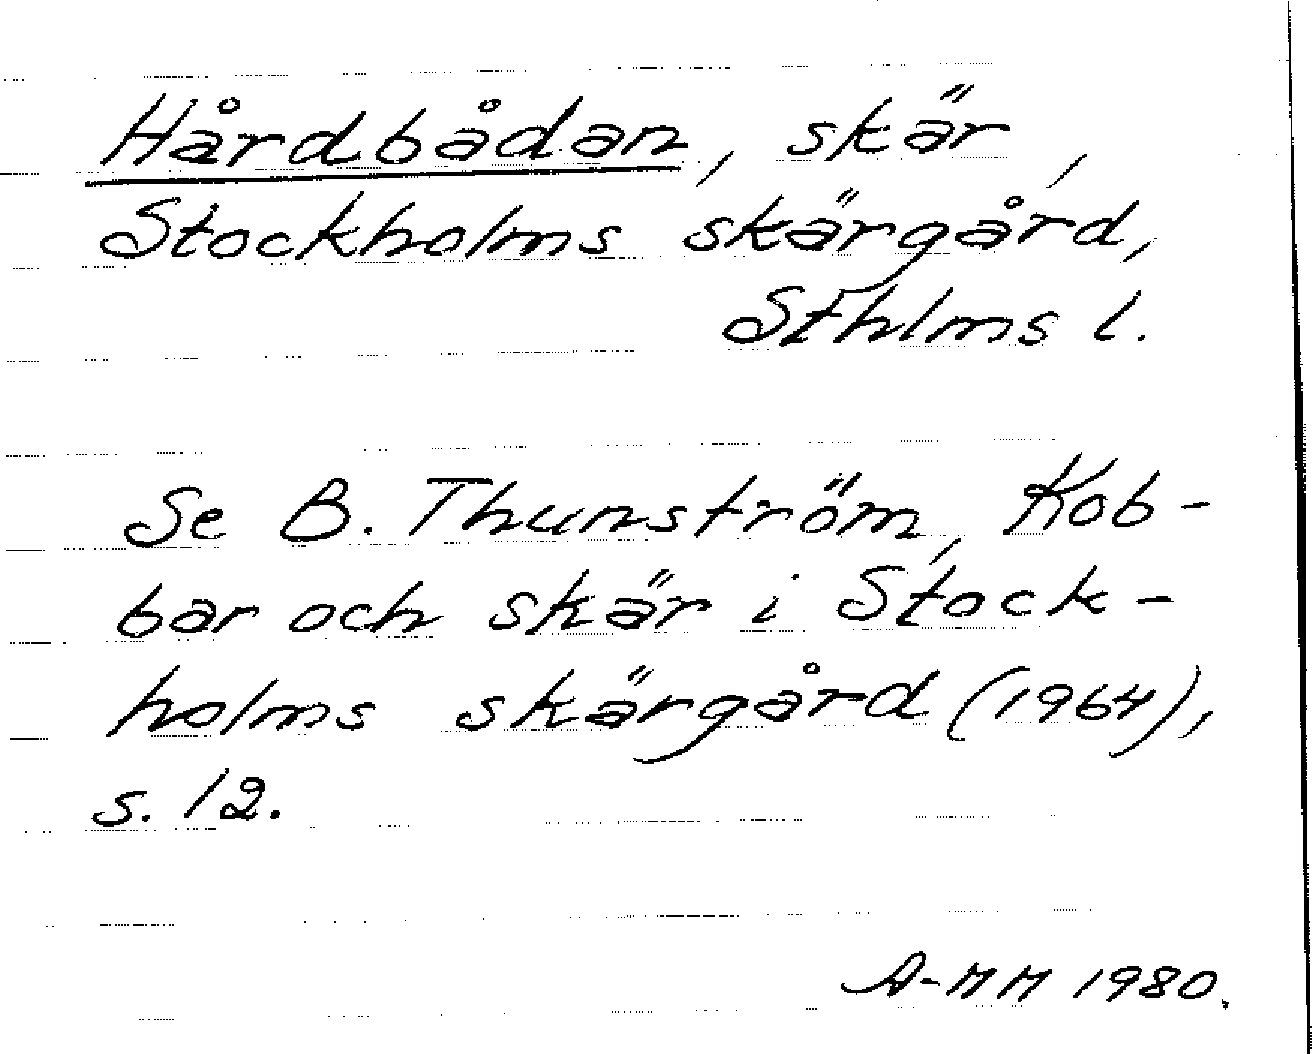 Hårdbådan, skär,
Stockholms skärgård,
Sthlms l.
Se B. Thunström, Kob-
bar och skär i Stock-
holms skärgård (1964),
s. 12.
A-MM 1980.